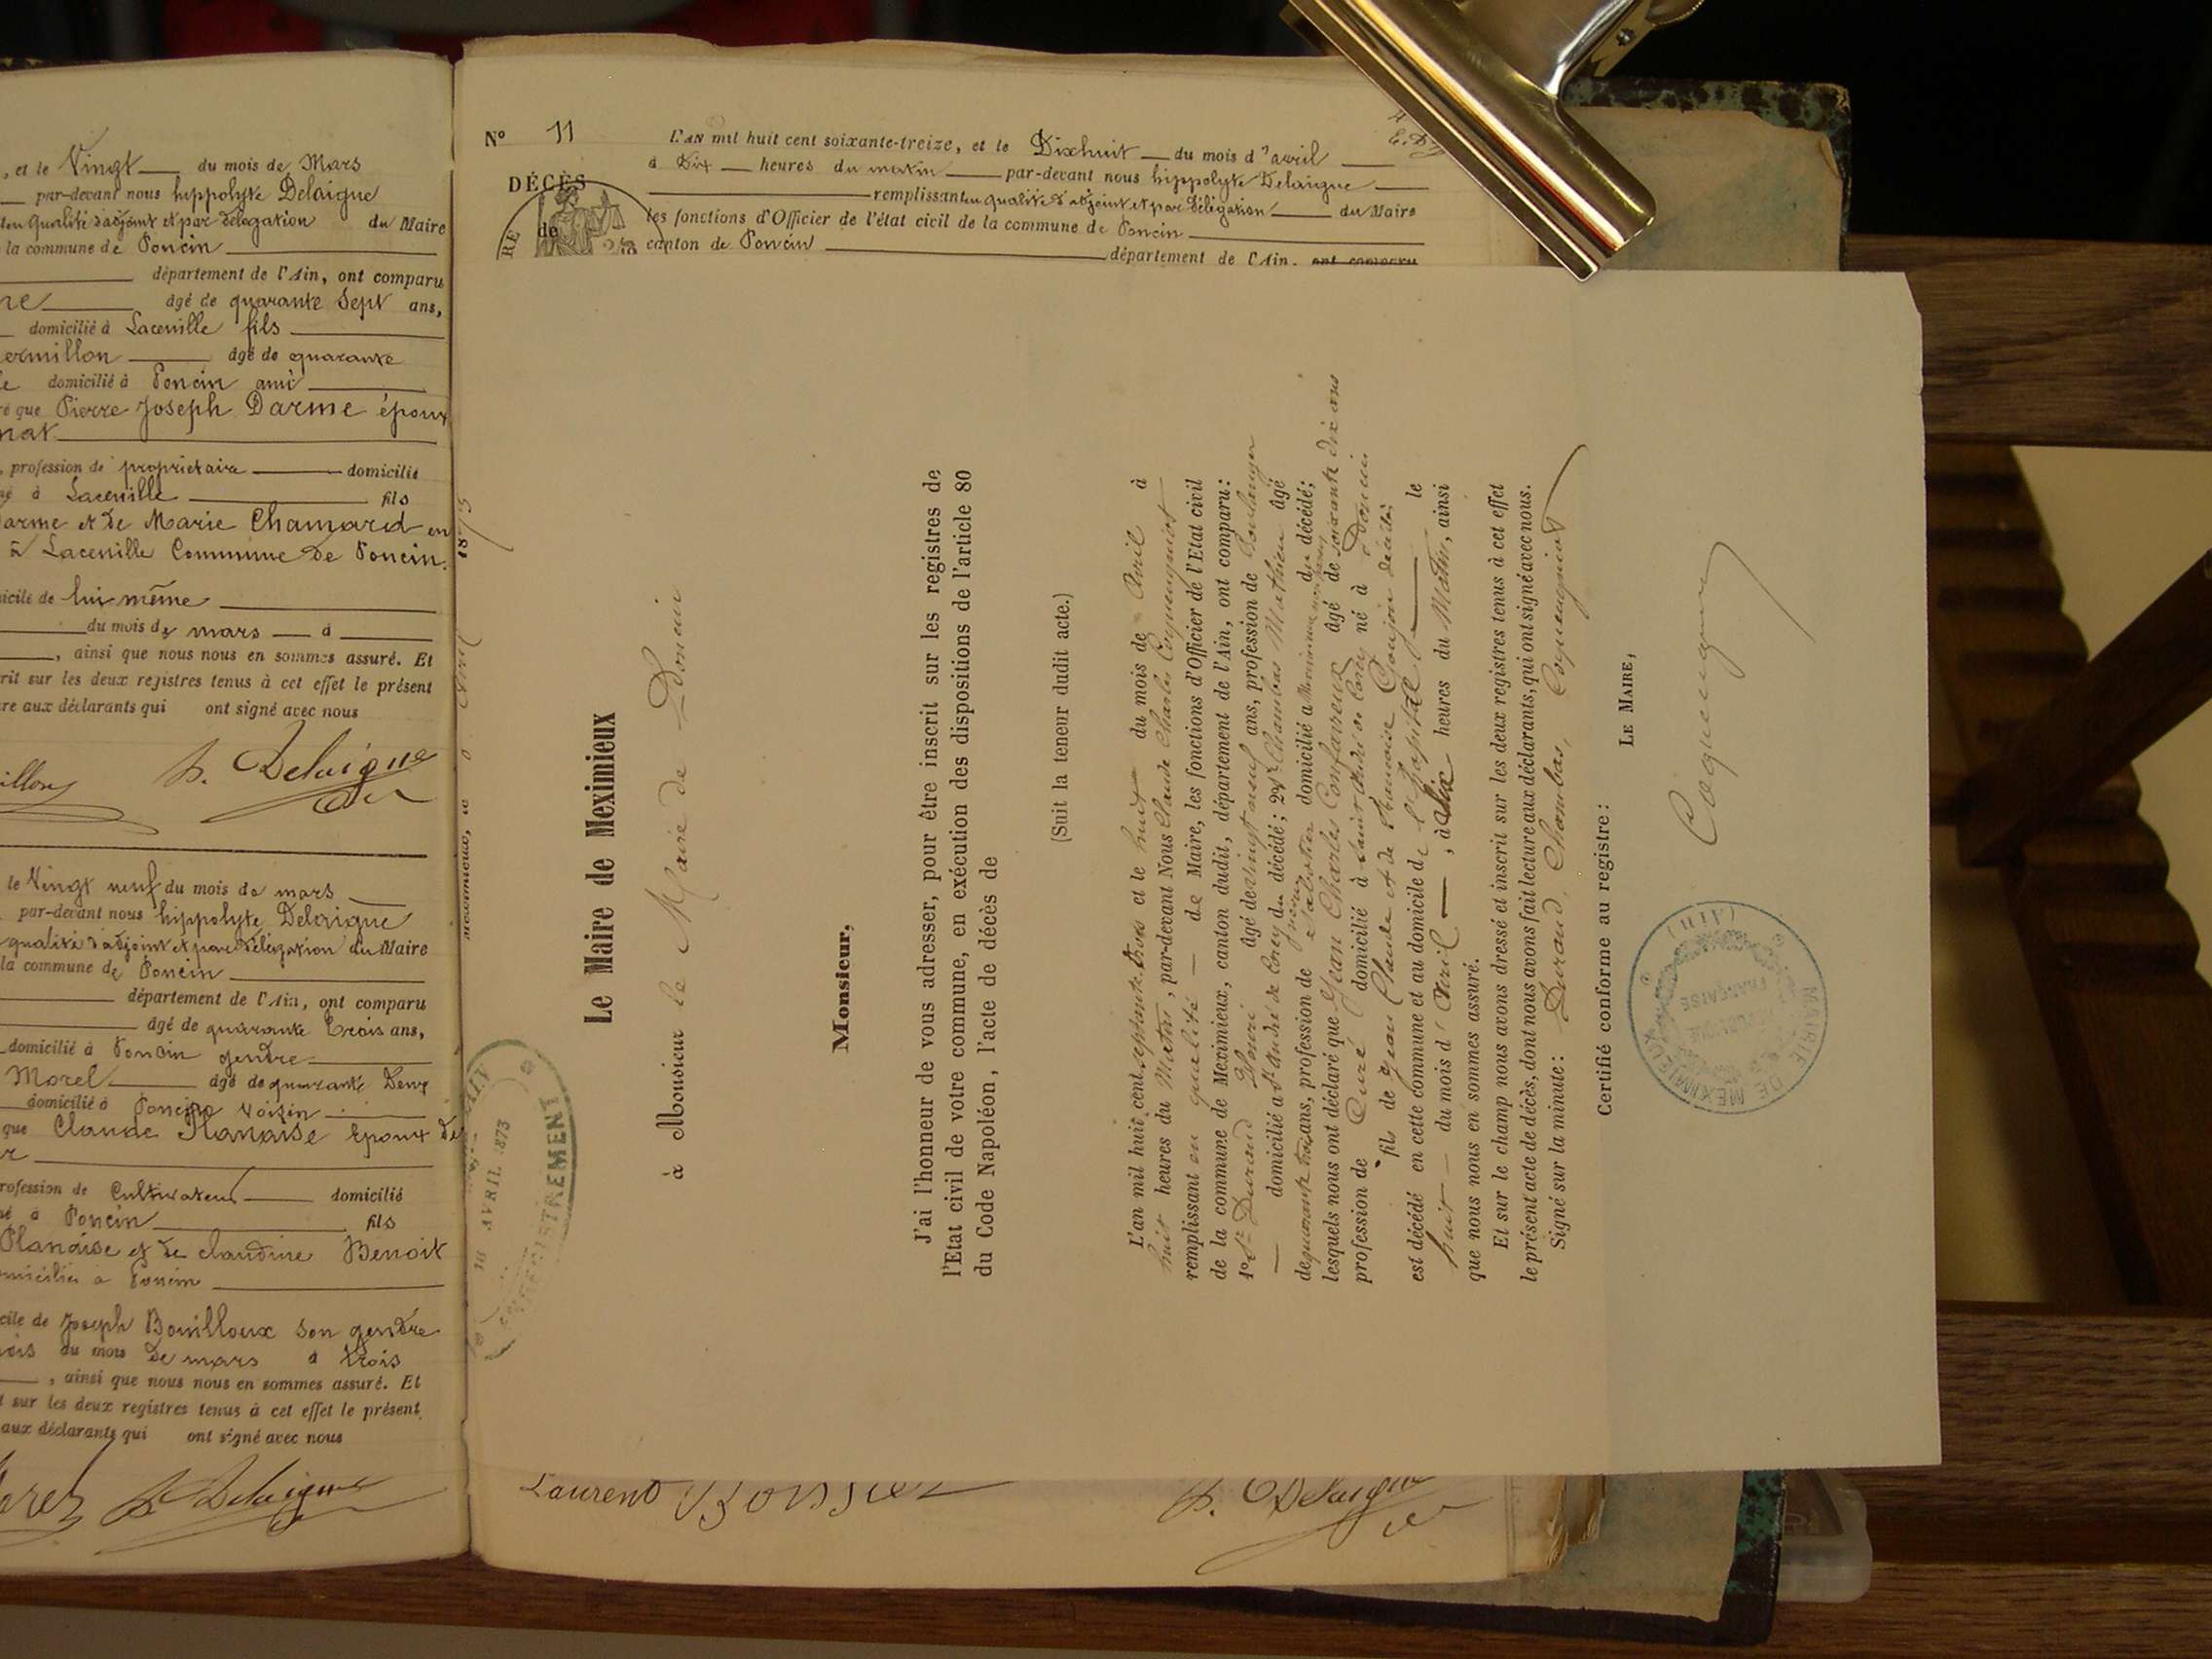 , et le Vingt du mois de Mars
par-devant nous hippolyte Delaigue
en qualité d'adjoint et par délégation du Maire
la commune de Poncin
département de l'Ain, ont comparu
âgé de quarante Sept ans,
domicilié à Lacenille fils
ermillon âgé de quarante
domicilié à Poncin ami
que Pierre Joseph Darme époux
nat
, profession de propriétaire domicilié
à Lacenille fils
arme et de Marie Chamard en
à Lacenille Commune de Poncin.
icile de lui même
du mois de mars à
, ainsi que nous nous en sommes assuré. Et
rit sur les deux registres tenus à cet effet le présent
re aux déclarants qui ont signé avec nous
illon
h. Delaigue
le Vingt neuf du mois de mars
par-devant nous hippolyte Delaigue
qualité d'adjoint et par délégation du Maire
la commune de Poncin
département de l'Ain, ont comparu
âgé de quarante trois ans,
domicilié à Poncin gendre
Morel âgé de quarante Deux
domicilié à Poncin Voisin
que Claude Planaise Epoux de
rofession de Cultivateur domicilié
à Poncin fils
Planaise et de claudine Benoit
omiciliés à Poncin
cile de Joseph Bouilloux Son gendre
ois du mois de mars à trois
, ainsi que nous nous en sommes assuré. Et
sur les deux registres tenus à cet effet le présent
aux déclarants qui ont signé avec nous
h. Delaigue
N° 11
DÉCÈS
de
L'AN mil huit cent soixante-treize, et le Dixhuit du mois d'avril
à Dix heures du matin par-devant nous hippolyte Delaigue
remplissant en qualité d'adjoint et par délégation du Maire
les fonctions d'Officier de l'état civil de la commune de Poncin
canton de Poncin département de l'Ain, ont comparu
Meximieux, le 8 Avril 1873
AVRIL 1873
ENREGISTREMENT
Le Maire de Meximieux
à Monsieur le Maire de Poncin
Monsieur,
J'ai l'honneur de vous adresser, pour être inscrit sur les registres de
l'Etat civil de votre commune, en exécution des dispositions de l'article 80
du Code Napoléon, l'acte de décès de
(Suit la teneur dudit acte.)
L'an mil huit cent septante trois et le huit du mois de Avril à
huit heures du Matin, par-devant Nous Claude Charles Coquengniot
remplissant en qualité de Maire, les fonctions d'Officier de l'Etat civil
de la commune de Meximieux, canton dudit, département de l'Ain, ont comparu:
1° Sr Durand Henri âgé de vingt neuf ans, profession de boulanger
domicilié a St André de Corcy du décédé; 2° Sr Chambas Mathieu âgé
de quarante trois ans, profession de Sabotier domicilié a Meximieux non parent du décédé;
lesquels nous ont déclaré que Jean Charles Confavreux âgé de soixante dix ans
profession de Curé domicilié à Saint André de Corcy né à Poncin
fils de Jean Claude et de Françoise Goujon décédés
est décédé en cette commune et au domicile de l'hôpital le
huit du mois d'Avril, à dix heures du Matin, ainsi
que nous nous en sommes assuré.
Et sur le champ nous avons dressé et inscrit sur les deux registres tenus à cet effet
le présent acte de décès, dont nous avons fait lecture aux déclarants, qui ont signé avec nous.
Signé sur la minute: Durand, Chambas, Coquengniot
Certifié conforme au registre:
LE MAIRE,
MAIRIE DE MEXIMIEUX (AIN)
Laurent
h. Delaigue